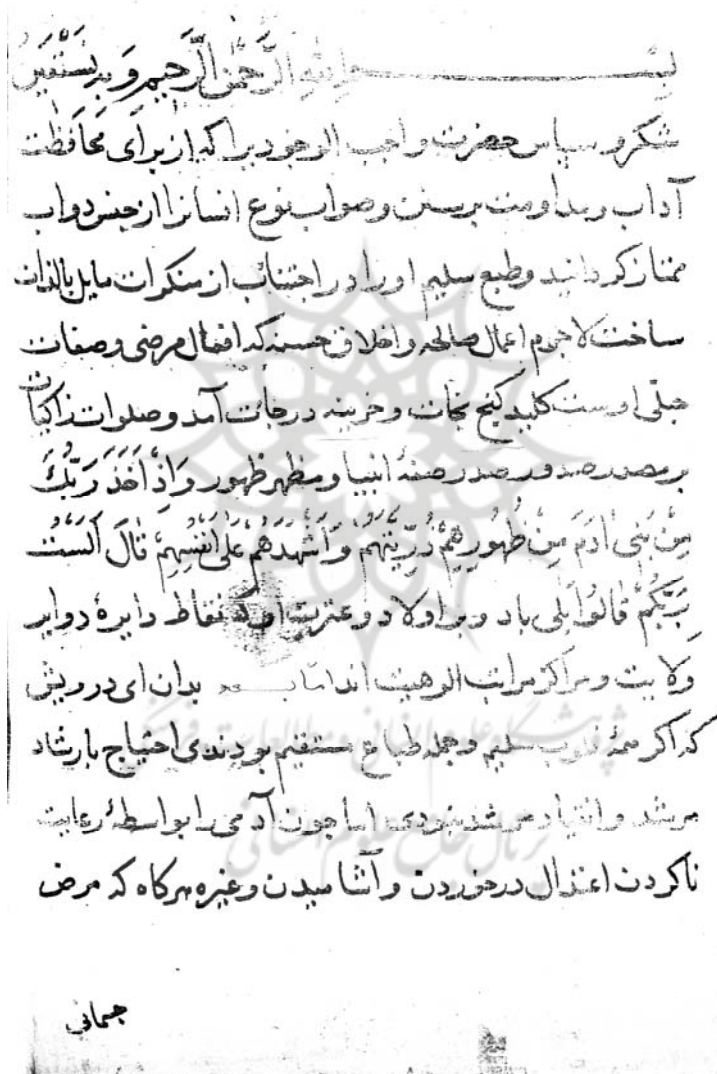 بسم الله الرحمن الرحیم وبه نستعین
شکر و سپاس حضرت واجب الوجودیرا که از برای محافظت
آداب و مداومت برسنن و صواب نوع انسانرا از جنس دواب
ممتاز کردانید وطبع سلیم اورا در اجتناب از منکرات مایل بالذات
ساخت لاجرم اعمال صالحه و اخلاق حسنه که افعال مرضی و صفات
جبلّی اوست کلید کنج نجات و خزینه درجات آمد و صلوات زاکیات
بر مصدر صدور صدر صفهٔ انبیا و مظهر ظهور وَاِذْ اَخَذَ رَبُّكَ
مِنْ بَنی آدَمَ مِنْ ظُهُورِهِمْ ذُرِّيَّتَهُمْ وَاَشْهَدَهُمْ عَلی اَنْفُسِهِمْ قالَ اَلَسْتُ
بِرَبِّكُمْ قالُوا بَلی باد و بر اولاد و عترت او که نقاط دایرهٔ دوایر
ولایت و مراکز مراتب الوهیت اند امّا بعد بدان ای درویش
که اکر همهٔ قلوب سلیم و جمله طباع مستقیم بودندی احتیاج بارشاد
مرشد و انقیاد مرشد نبودی اما چون آدمی را بواسطهٔ رعایت
ناکردن اعتدال درخوردن و آشامیدن وغیره هرکاه که مرض
جسمانی
پژوهشگاه علوم انسانی و مطالعات فرهنگی
پرتال جامع علوم انسانی